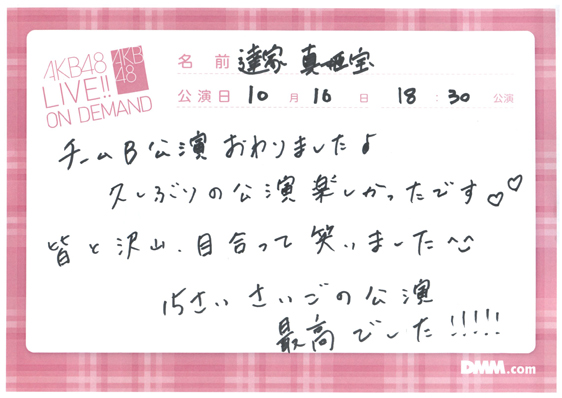 AKB48
LIVE!!
ON DEMAND
AKB
48
名前 達家 真姫宝
公演日 10月16日 18:30 公演
チームB公演 おわりました♪
久しぶりの公演楽しかったです♡♡
皆と沢山、目合って笑いました^^
15さい さいごの公演
最高でした!!!!!
DMM.com